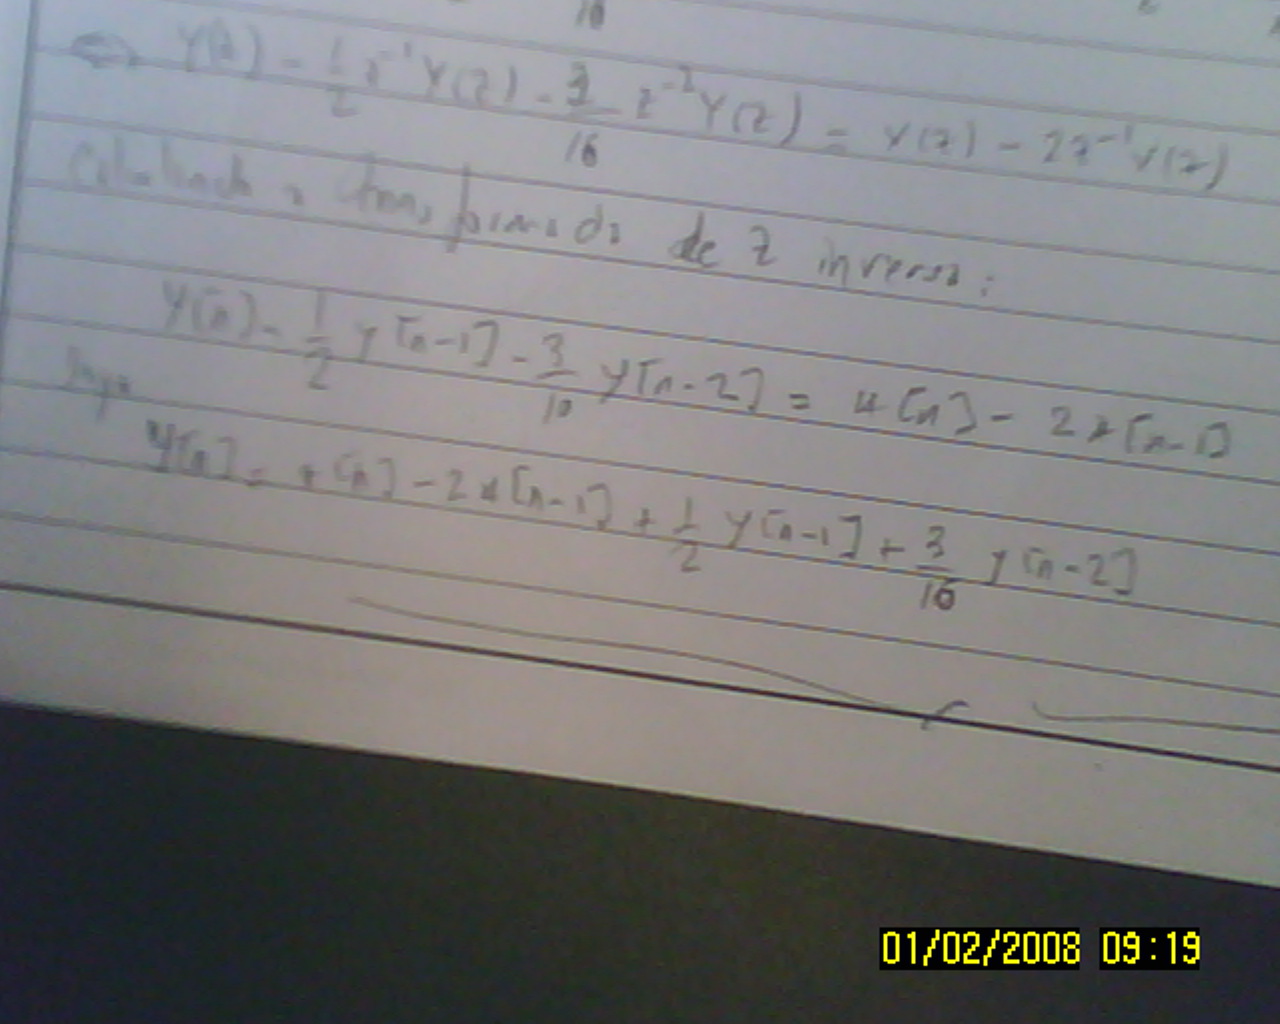 16
⇔ Y(z) - 1/2 z⁻¹ Y(z) - 3/16 z⁻² Y(z) = X(z) - 2z⁻¹ X(z)
a transformada de Z inversa:
y[n] - 1/2 y[n-1] - 3/16 y[n-2] = x[n] - 2x[n-1]
y[n] = x[n] - 2x[n-1] + 1/2 y[n-1] + 3/16 y[n-2]
01/02/2008 09:19